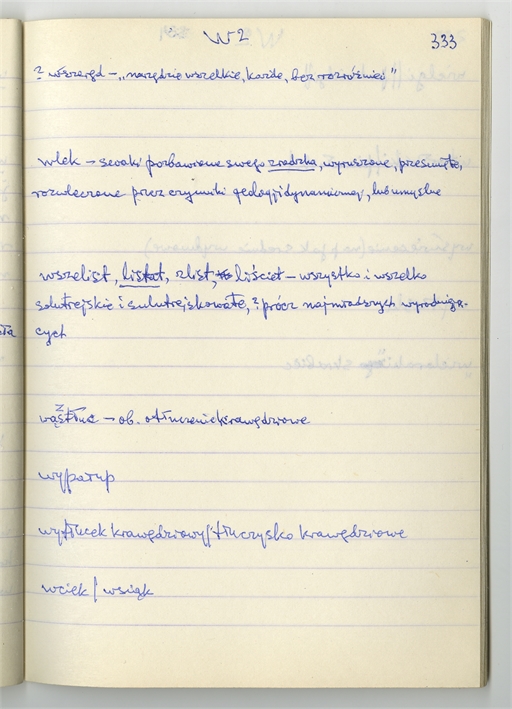 W2 333
? wszerąd – „narzędzie wszelkie, każde, bez rozróżnień"
wlek – sevaki pozbawione swego zradzka, wyruszone, przesunięte,
rozwleczone przez czynniki geologijdynamicznej, lub umyślne
wszelist, listat, zlist, liściet – wszystko i wszelko
solutrejskie i sulutrejskowate, ? prócz najmłodszych wyrodnieją-
cych
wąztłuc – ob. otłuczenie krawędziowe
wypatup
wytłucek krawędziowy / tłuczysko krawędziowe
wciek / wsiąk